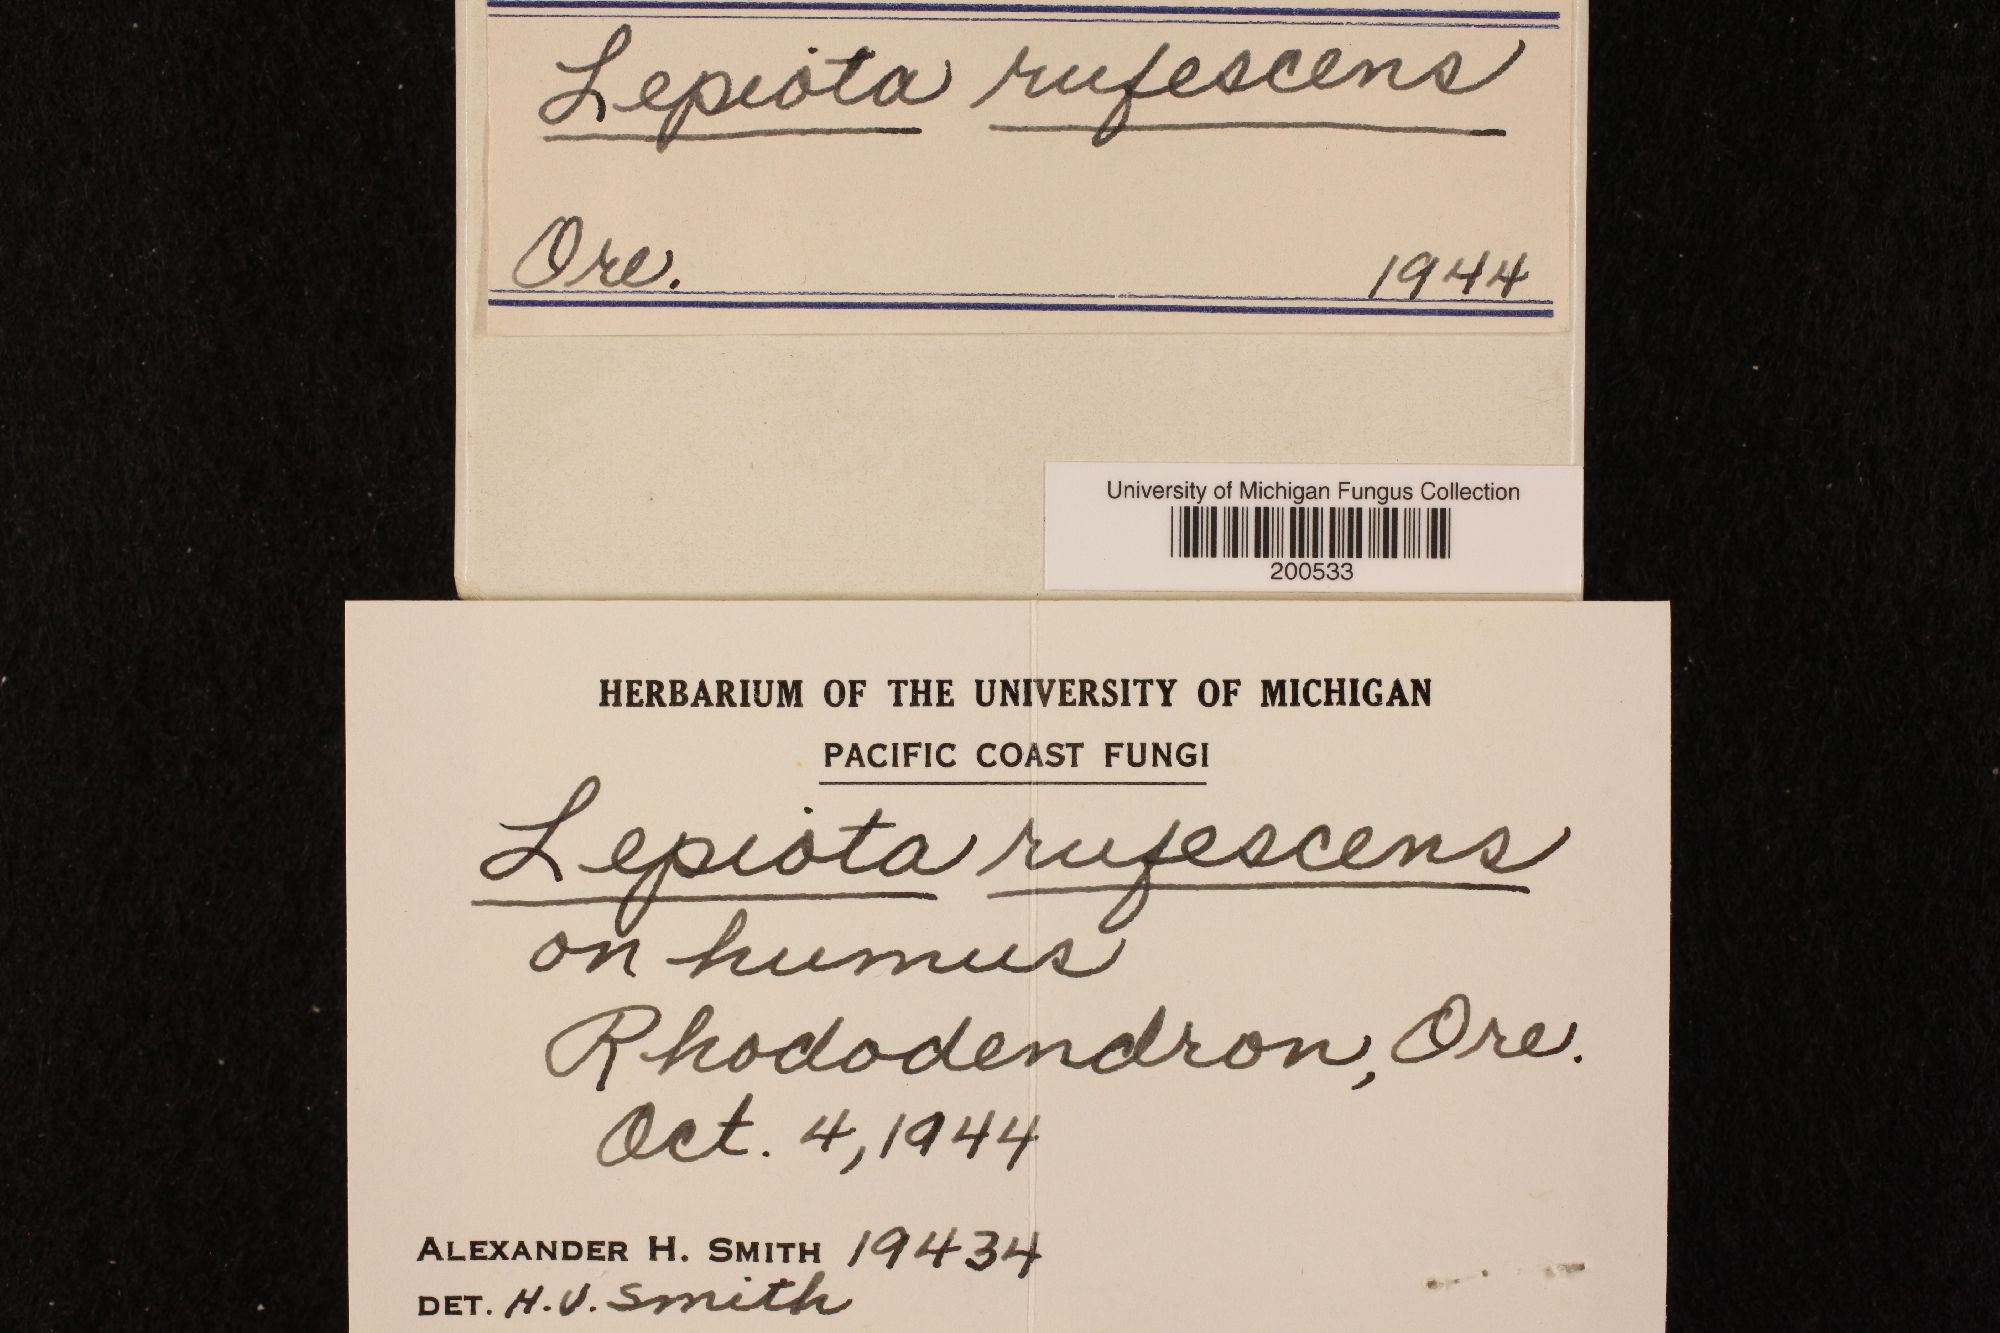 Lepiota rufescens
Ore. 1944
University of Michigan Fungus Collection
200533
HERBARIUM OF THE UNIVERSITY OF MICHIGAN
PACIFIC COAST FUNGI
Lepiota rufescens
on humus
Rhododendron, Ore.
Oct. 4, 1944
ALEXANDER H. SMITH 19434
DET. H.V. Smith